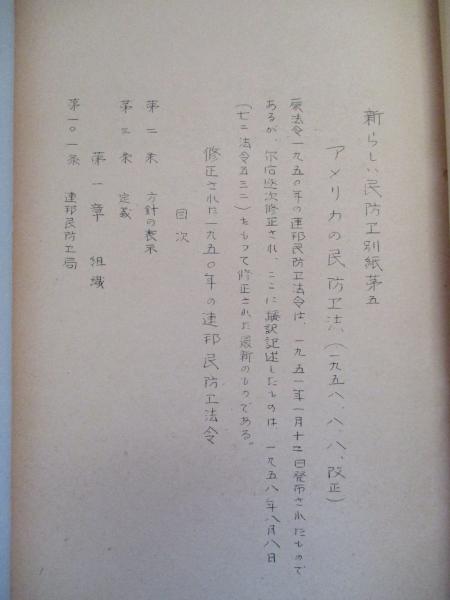 新らしい民防卫別紙第五
アメリカの民防卫法(一九五八、八、八、改正)
原法令一九五〇年の連邦民防卫法令は、一九五一年一月十二日発布されたもので
あるが、尓后逐次修正され、ここに飜訳記述したものは、一九五八年八月八日
(七二法令五三二)をもつて修正された最新のものである。
修正された一九五〇年の連邦民防卫法令
目次
第二条 方針の表示
第三条 定義
第一章 組織
第一〇一条 連邦民防卫局